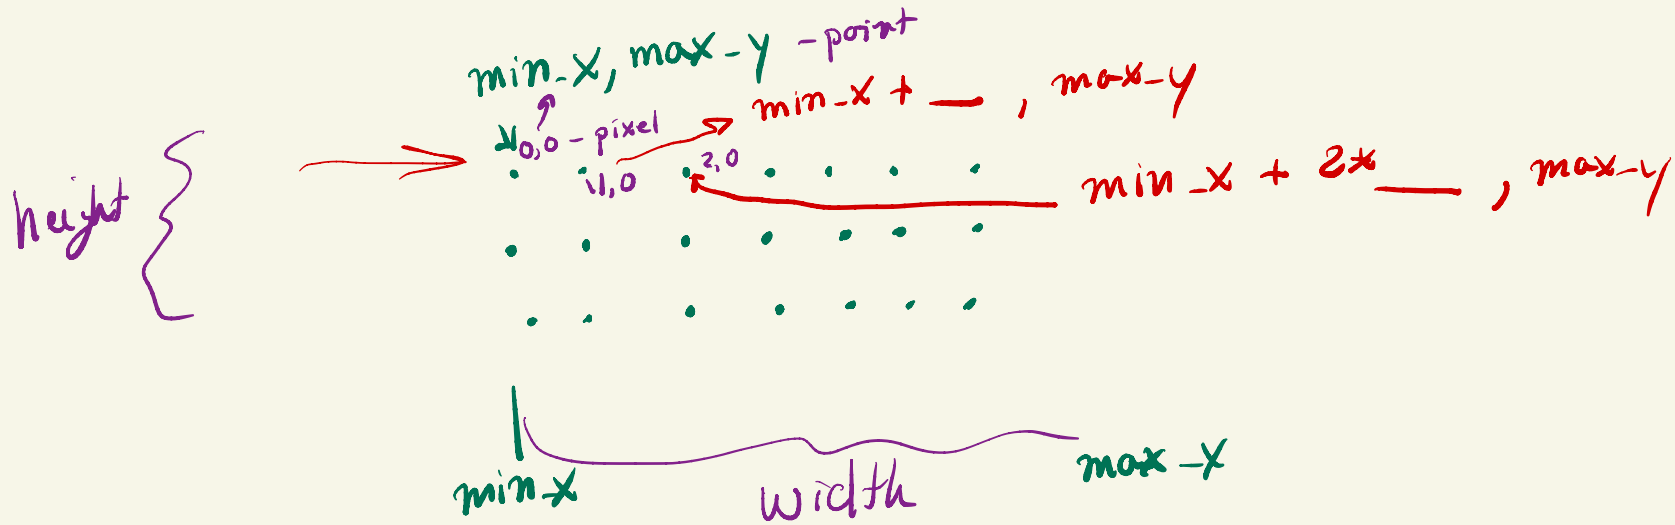 min_x, max_y - point
min_x + __ , max_y
0,0 - pixel
1,0
2,0
min_x + 2* __ , max_y
height
min_x
max_x
width